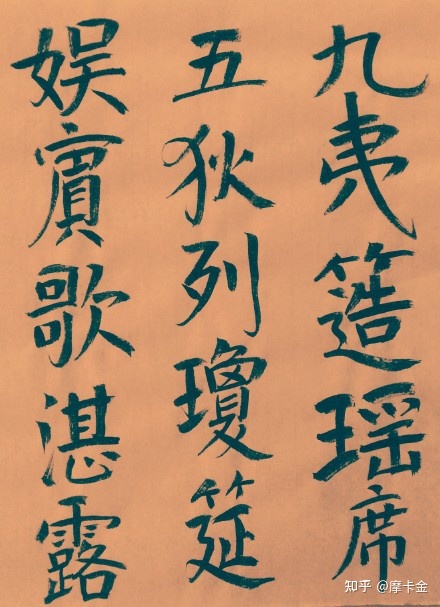 九夷簉瑶席
五狄列瓊筵
娱賓歌湛露
知乎 @摩卡金